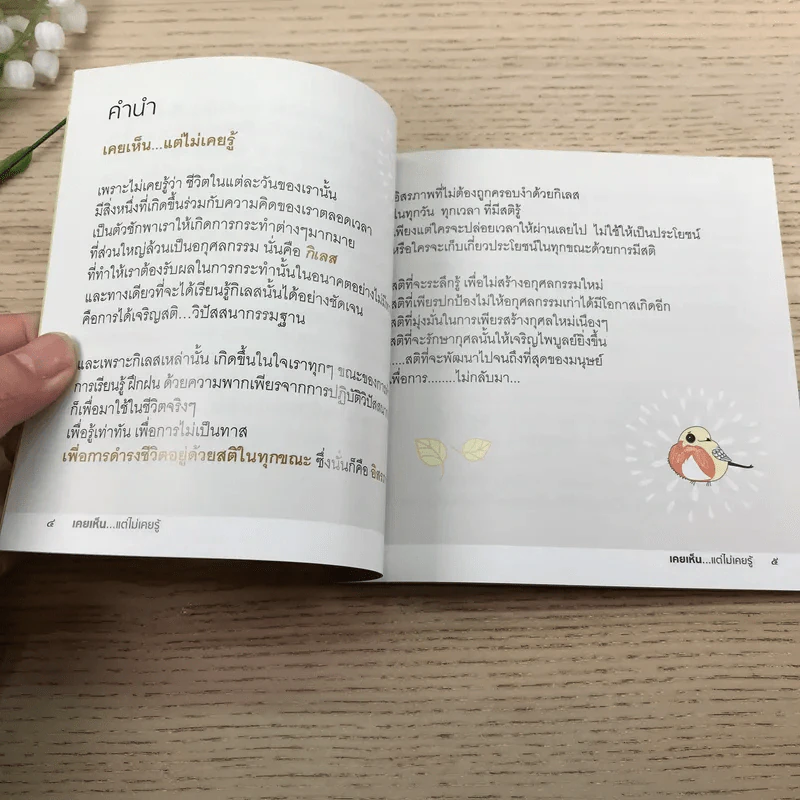 คำนำ
เคยเห็น...แต่ไม่เคยรู้
เพราะไม่เคยรู้ว่า ชีวิตในแต่ละวันของเรานั้น
มีสิ่งหนึ่งที่เกิดขึ้นร่วมกับความคิดของเราตลอดเวลา
เป็นตัวชักพาเราให้เกิดการกระทำต่างๆมากมาย
ที่ส่วนใหญ่ล้วนเป็นอกุศลกรรม นั่นคือ กิเลส
ที่ทำให้เราต้องรับผลในการกระทำนั้นในอนาคตอย่าง
และทางเดียวที่จะได้เรียนรู้กิเลสนั้นได้อย่างชัดเจน
คือการได้เจริญสติ...วิปัสสนากรรมฐาน
และเพราะกิเลสเหล่านั้น เกิดขึ้นในใจเราทุกๆ ขณะของ
การเรียนรู้ ฝึกฝน ด้วยความพากเพียรจากการปฏิบัติ
ก็เพื่อมาใช้ในชีวิตจริงๆ
เพื่อรู้เท่าทัน เพื่อการไม่เป็นทาส
เพื่อการดำรงชีวิตอยู่ด้วยสติในทุกขณะ ซึ่งนั่นก็คือ
๔ เคยเห็น...แต่ไม่เคยรู้
อิสรภาพที่ไม่ต้องถูกครอบงำด้วยกิเลส
ในทุกวัน ทุกเวลา ที่มีสติรู้
เพียงแต่ใครจะปล่อยเวลาให้ผ่านเลยไป ไม่ใช้ให้เป็นประโยชน์
หรือใครจะเก็บเกี่ยวประโยชน์ในทุกขณะด้วยการมีสติ
สติที่จะระลึกรู้ เพื่อไม่สร้างอกุศลกรรมใหม่
สติที่เพียรปกป้องไม่ให้อกุศลกรรมเก่าได้มีโอกาสเกิดอีก
สติที่มุ่งมั่นในการเพียรสร้างกุศลใหม่เนืองๆ
สติที่จะรักษากุศลนั้นให้เจริญไพบูลย์ยิ่งขึ้น
....สติที่จะพัฒนาไปจนถึงที่สุดของมนุษย์
เพื่อการ........ไม่กลับมา...
เคยเห็น...แต่ไม่เคยรู้ ๕